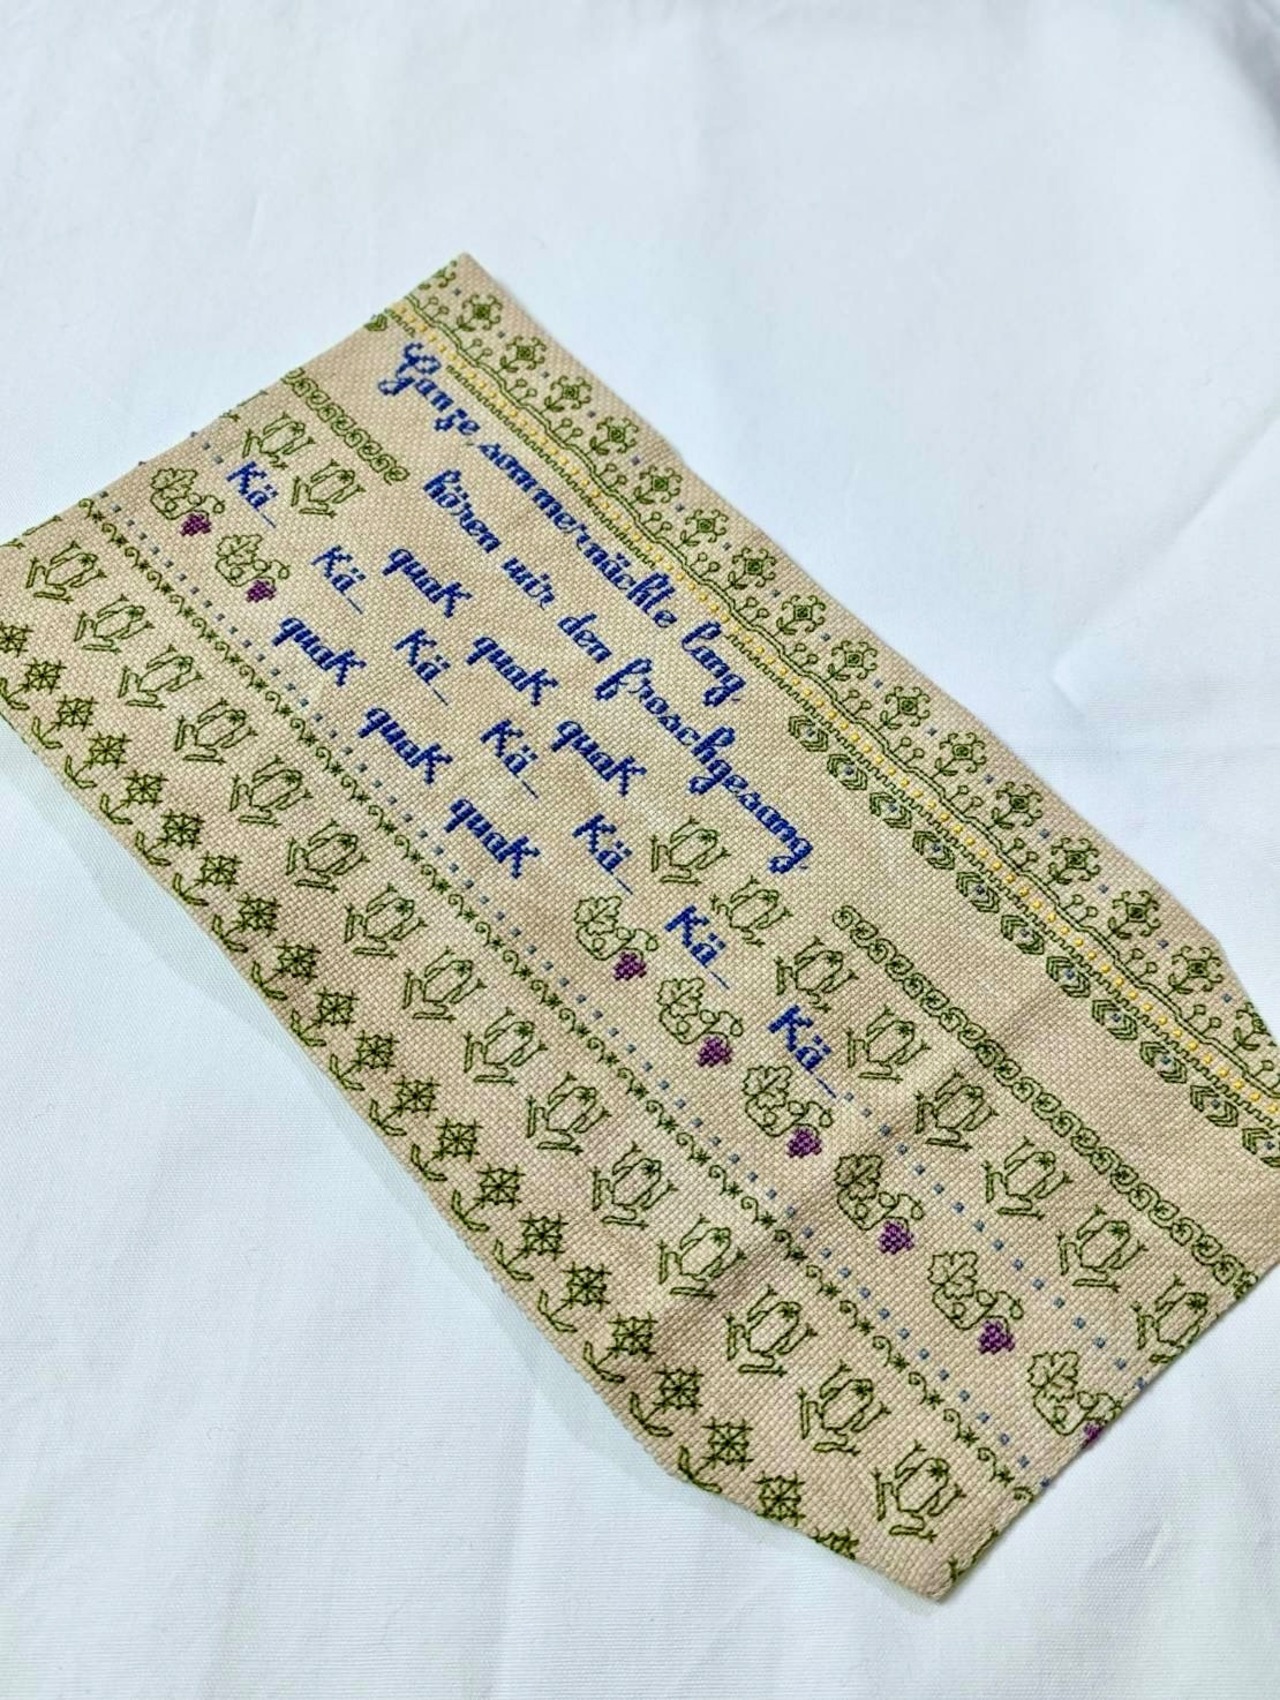 Ganze sommernächte lang
hören wir den froschgesang
quak quak quak
Kä_ Kä_ Kä_ Kä_ Kä_ Kä_ Kä_
quak quak quak